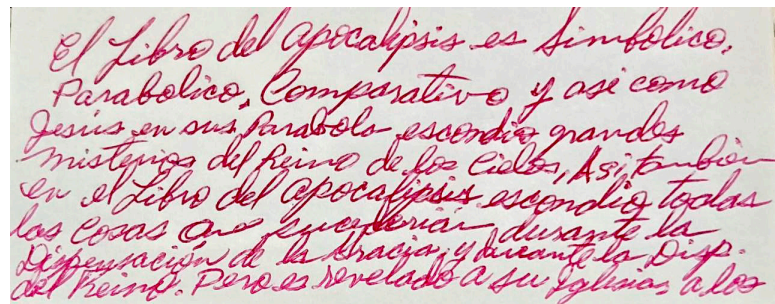 El Libro del Apocalipsis es Simbolico,
Parabolico, Comparativo y asi como
Jesús en sus Parabola escondio grandes
misterios del Reino de los Cielos, Asi, tambien
en el Libro del Apocalipsis escondio todas
las cosas que sucederian durante la
Dispensación de la Gracia y durante la Disp.
del Reino. Pero es revelado a su Iglesia, a los